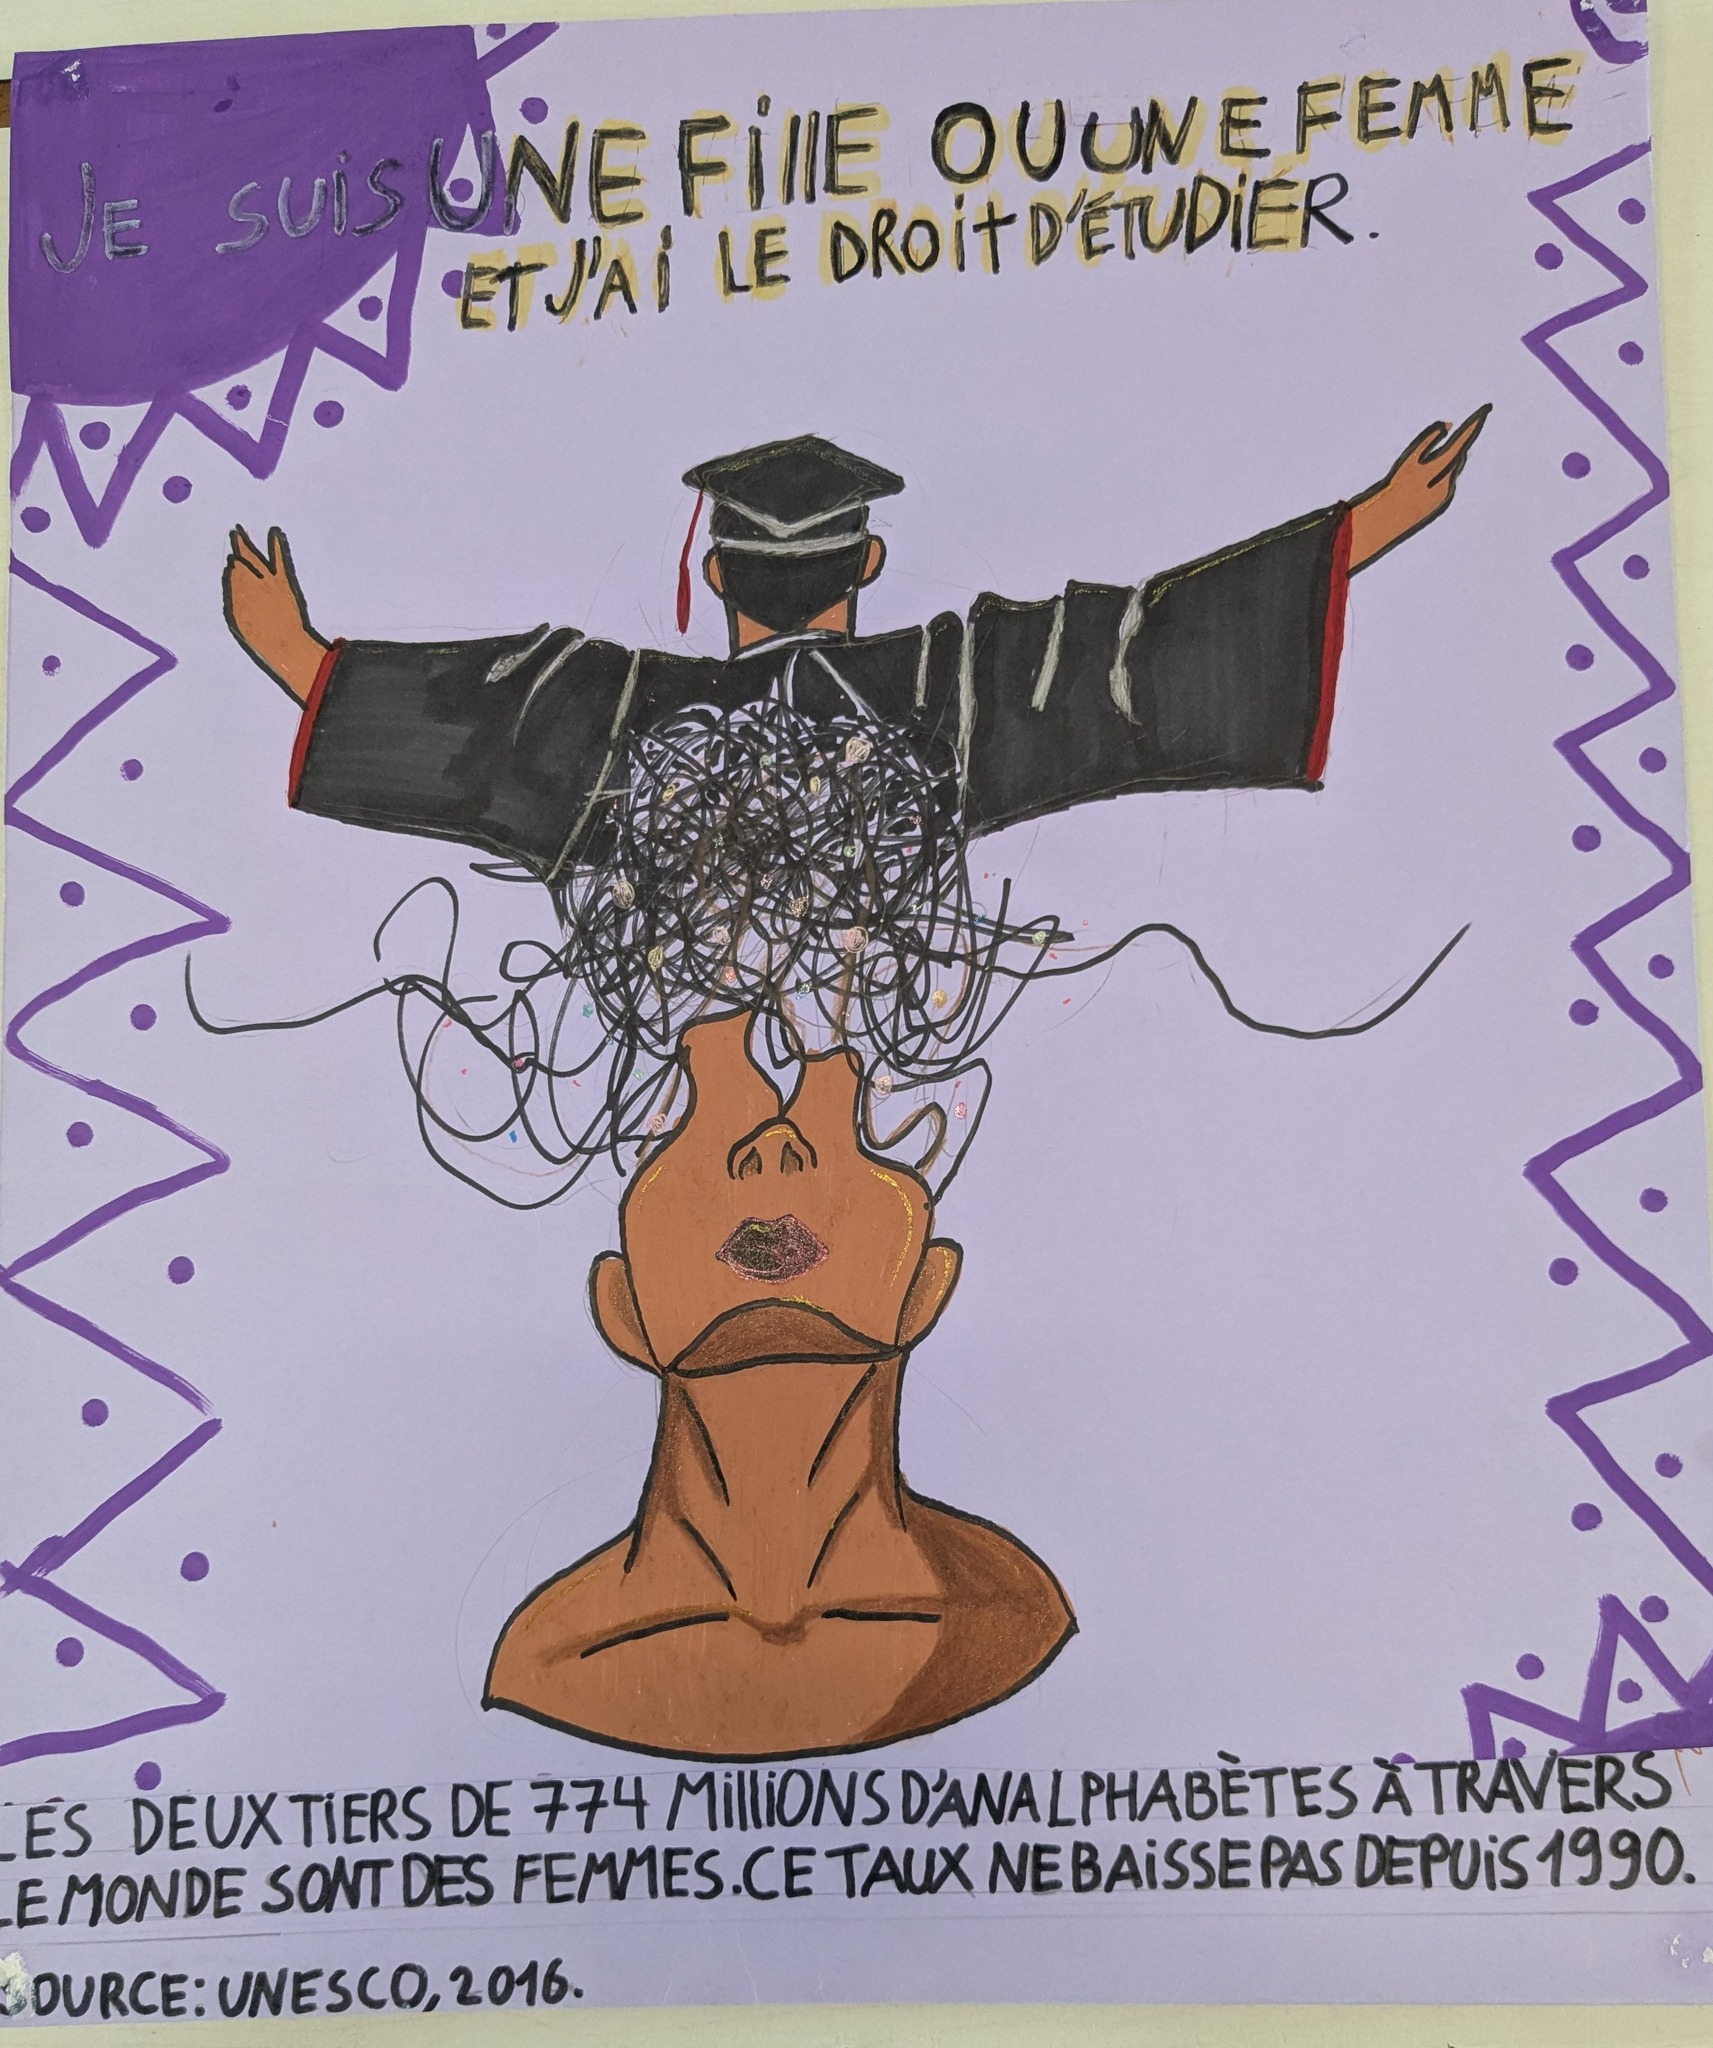 JE SUIS UNE FILLE OU UNE FEMME
ET J'AI LE DROIT D'ÉTUDIÉR.
LES DEUX TIERS DE 774 MILLIONS D'ANALPHABÈTES À TRAVERS
LE MONDE SONT DES FEMMES. CE TAUX NE BAISSE PAS DEPUIS 1990.
SOURCE: UNESCO, 2016.